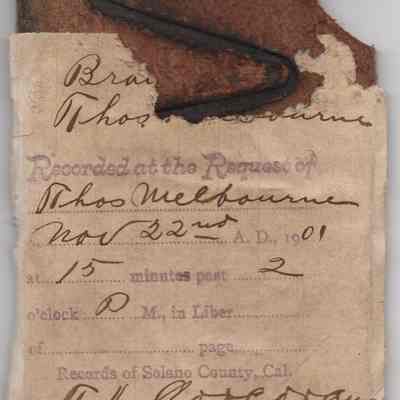 Thos Melbourne
Recorded at the Request of
Thos Melbourne
Nov 22nd A. D., 1901
at 15 minutes past 2
o'clock P M., in Liber
of page
Records of Solano County, Cal.